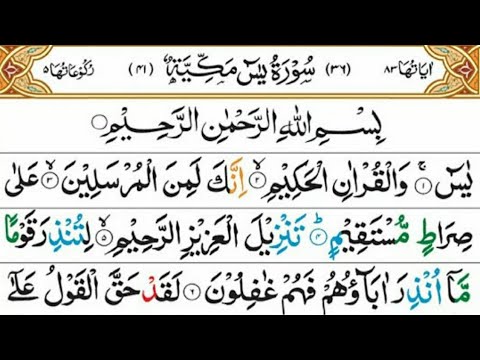 اٰیَاتُهَا ۸۳ (۳۶) سُوْرَةُ یٰسٓ مَكِّیَّةٌ (۴۱) رُكُوْعَاتُهَا ۵
بِسْمِ اللهِ الرَّحْمٰنِ الرَّحِیْمِ
یٰسٓ ۚ﴿۱﴾ وَالْقُرْاٰنِ الْحَكِیْمِ ۙ﴿۲﴾ اِنَّكَ لَمِنَ الْمُرْسَلِیْنَ ۙ﴿۳﴾ عَلٰی
صِرَاطٍ مُّسْتَقِیْمٍ ؕ﴿۴﴾ تَنْزِیْلَ الْعَزِیْزِ الرَّحِیْمِ ۙ﴿۵﴾ لِتُنْذِرَ قَوْمًا
مَّاۤ اُنْذِرَ اٰبَآؤُهُمْ فَهُمْ غٰفِلُوْنَ ﴿۶﴾ لَقَدْ حَقَّ الْقَوْلُ عَلٰۤی